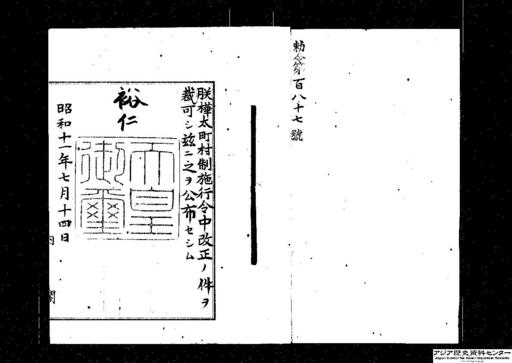 勅令第百八十七號
朕樺太町村制施行令中改正ノ件ヲ
裁可シ玆ニ之ヲ公布セシム
裕仁
天皇
御璽
昭和十一年七月十四日
内閣
アジア歴史資料センター
Japan Center for Asian Historical Records